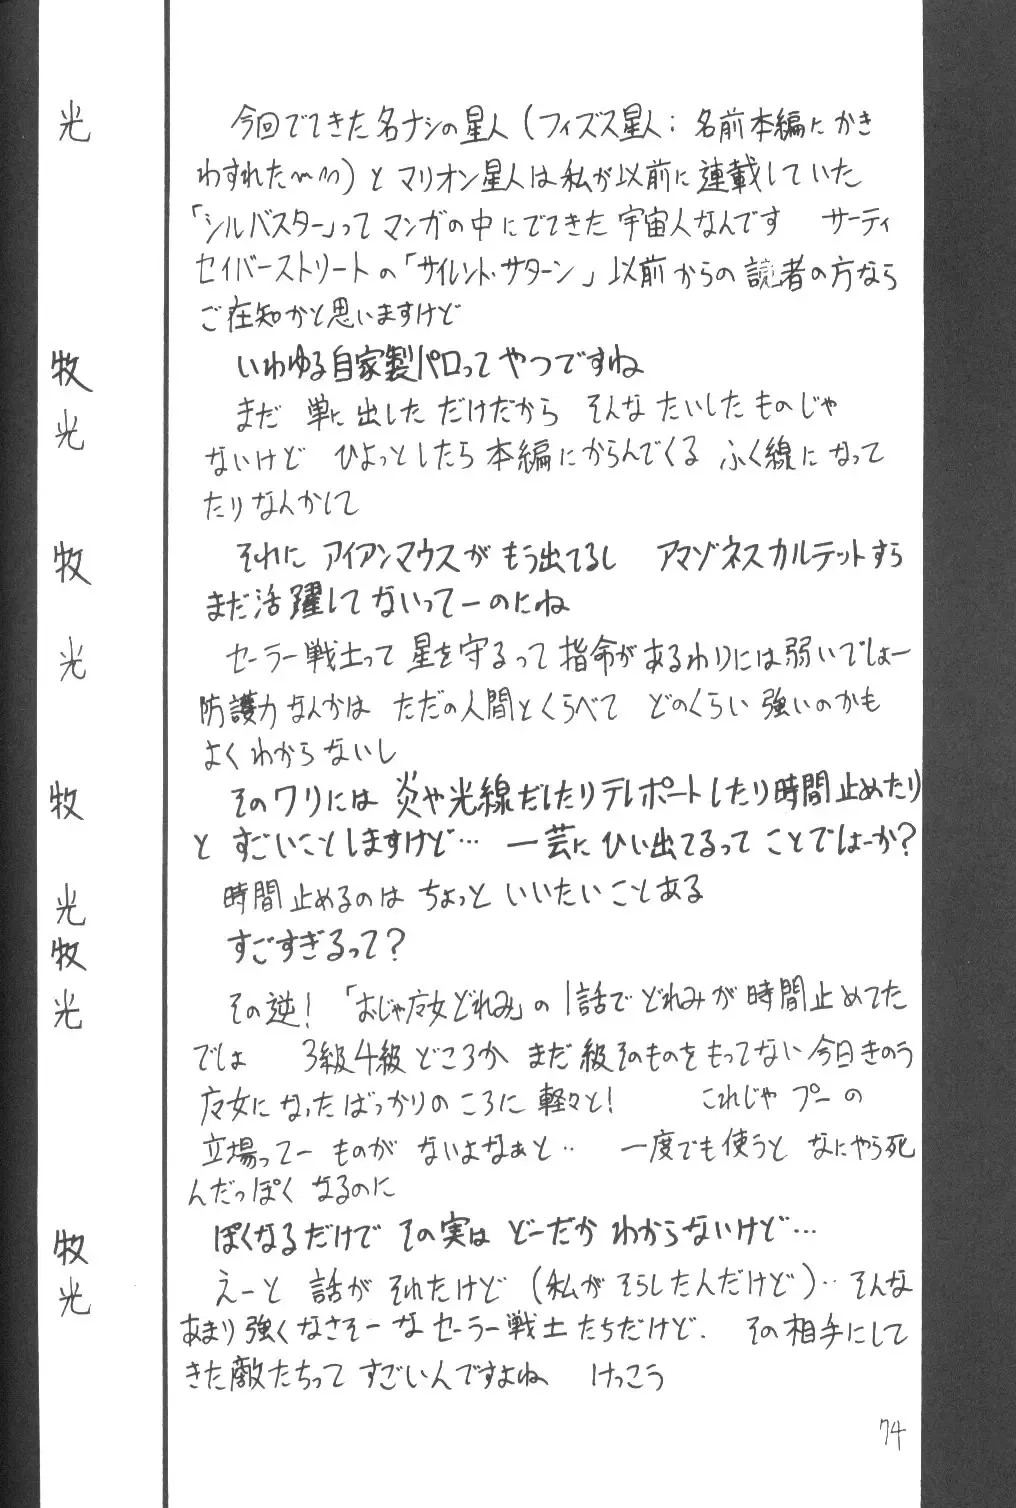 光 今回でてきた名ナシの星人(フィズス星人:名前本編にかき
わすれた〜〜)とマリオン星人は私が以前に連載していた
「シルバスター」ってマンガの中にでてきた宇宙人なんです サーティ
セイバーストリートの「サイレント・サターン」以前からの読者の方なら
ご在知かと思いますけど
牧 いわゆる自家製パロってやつですね
光 まだ単に出しただけだから そんなたいしたものじゃ
ないけど ひょっとしたら本編にからんでくる ふく線になって
たりなんかして
牧 それに アイアンマウスがもう出てるし アマゾネスカルテットすら
まだ活躍してないってーのにね
光 セーラー戦士って星を守るって指命があるわりには弱いでしょー
防護力なんかは ただの人間とくらべて どのくらい強いのかも
よくわからないし
牧 そのワリには 炎や光線だしたりテレポートしたり時間止めたり
と すごいことしますけど… 一芸にひい出てるってことでしょーか?
光 時間止めるのは ちょっと いいたいことある
牧 すごすぎるって?
光 その逆!「おじゃ広女どれみ」の1話でどれみが時間止めてた
でしょ 3級4級どころか まだ級そのものをもってない今日きのう
広女になったばっかりのころに軽々と! これじゃ プーの
立場ってー ものが ないよなぁと‥ 一度でも使うと なにやら死
んだっぽくなるのに
牧 ぽくなるだけで その実は どーだか わからないけど…
光 えーと 話がそれたけど(私がそらしたんだけど)‥そんな
あまり強くなさそーなセーラー戦士たちだけど. その相手にして
きた敵たちって すごいんですよね けっこう
74